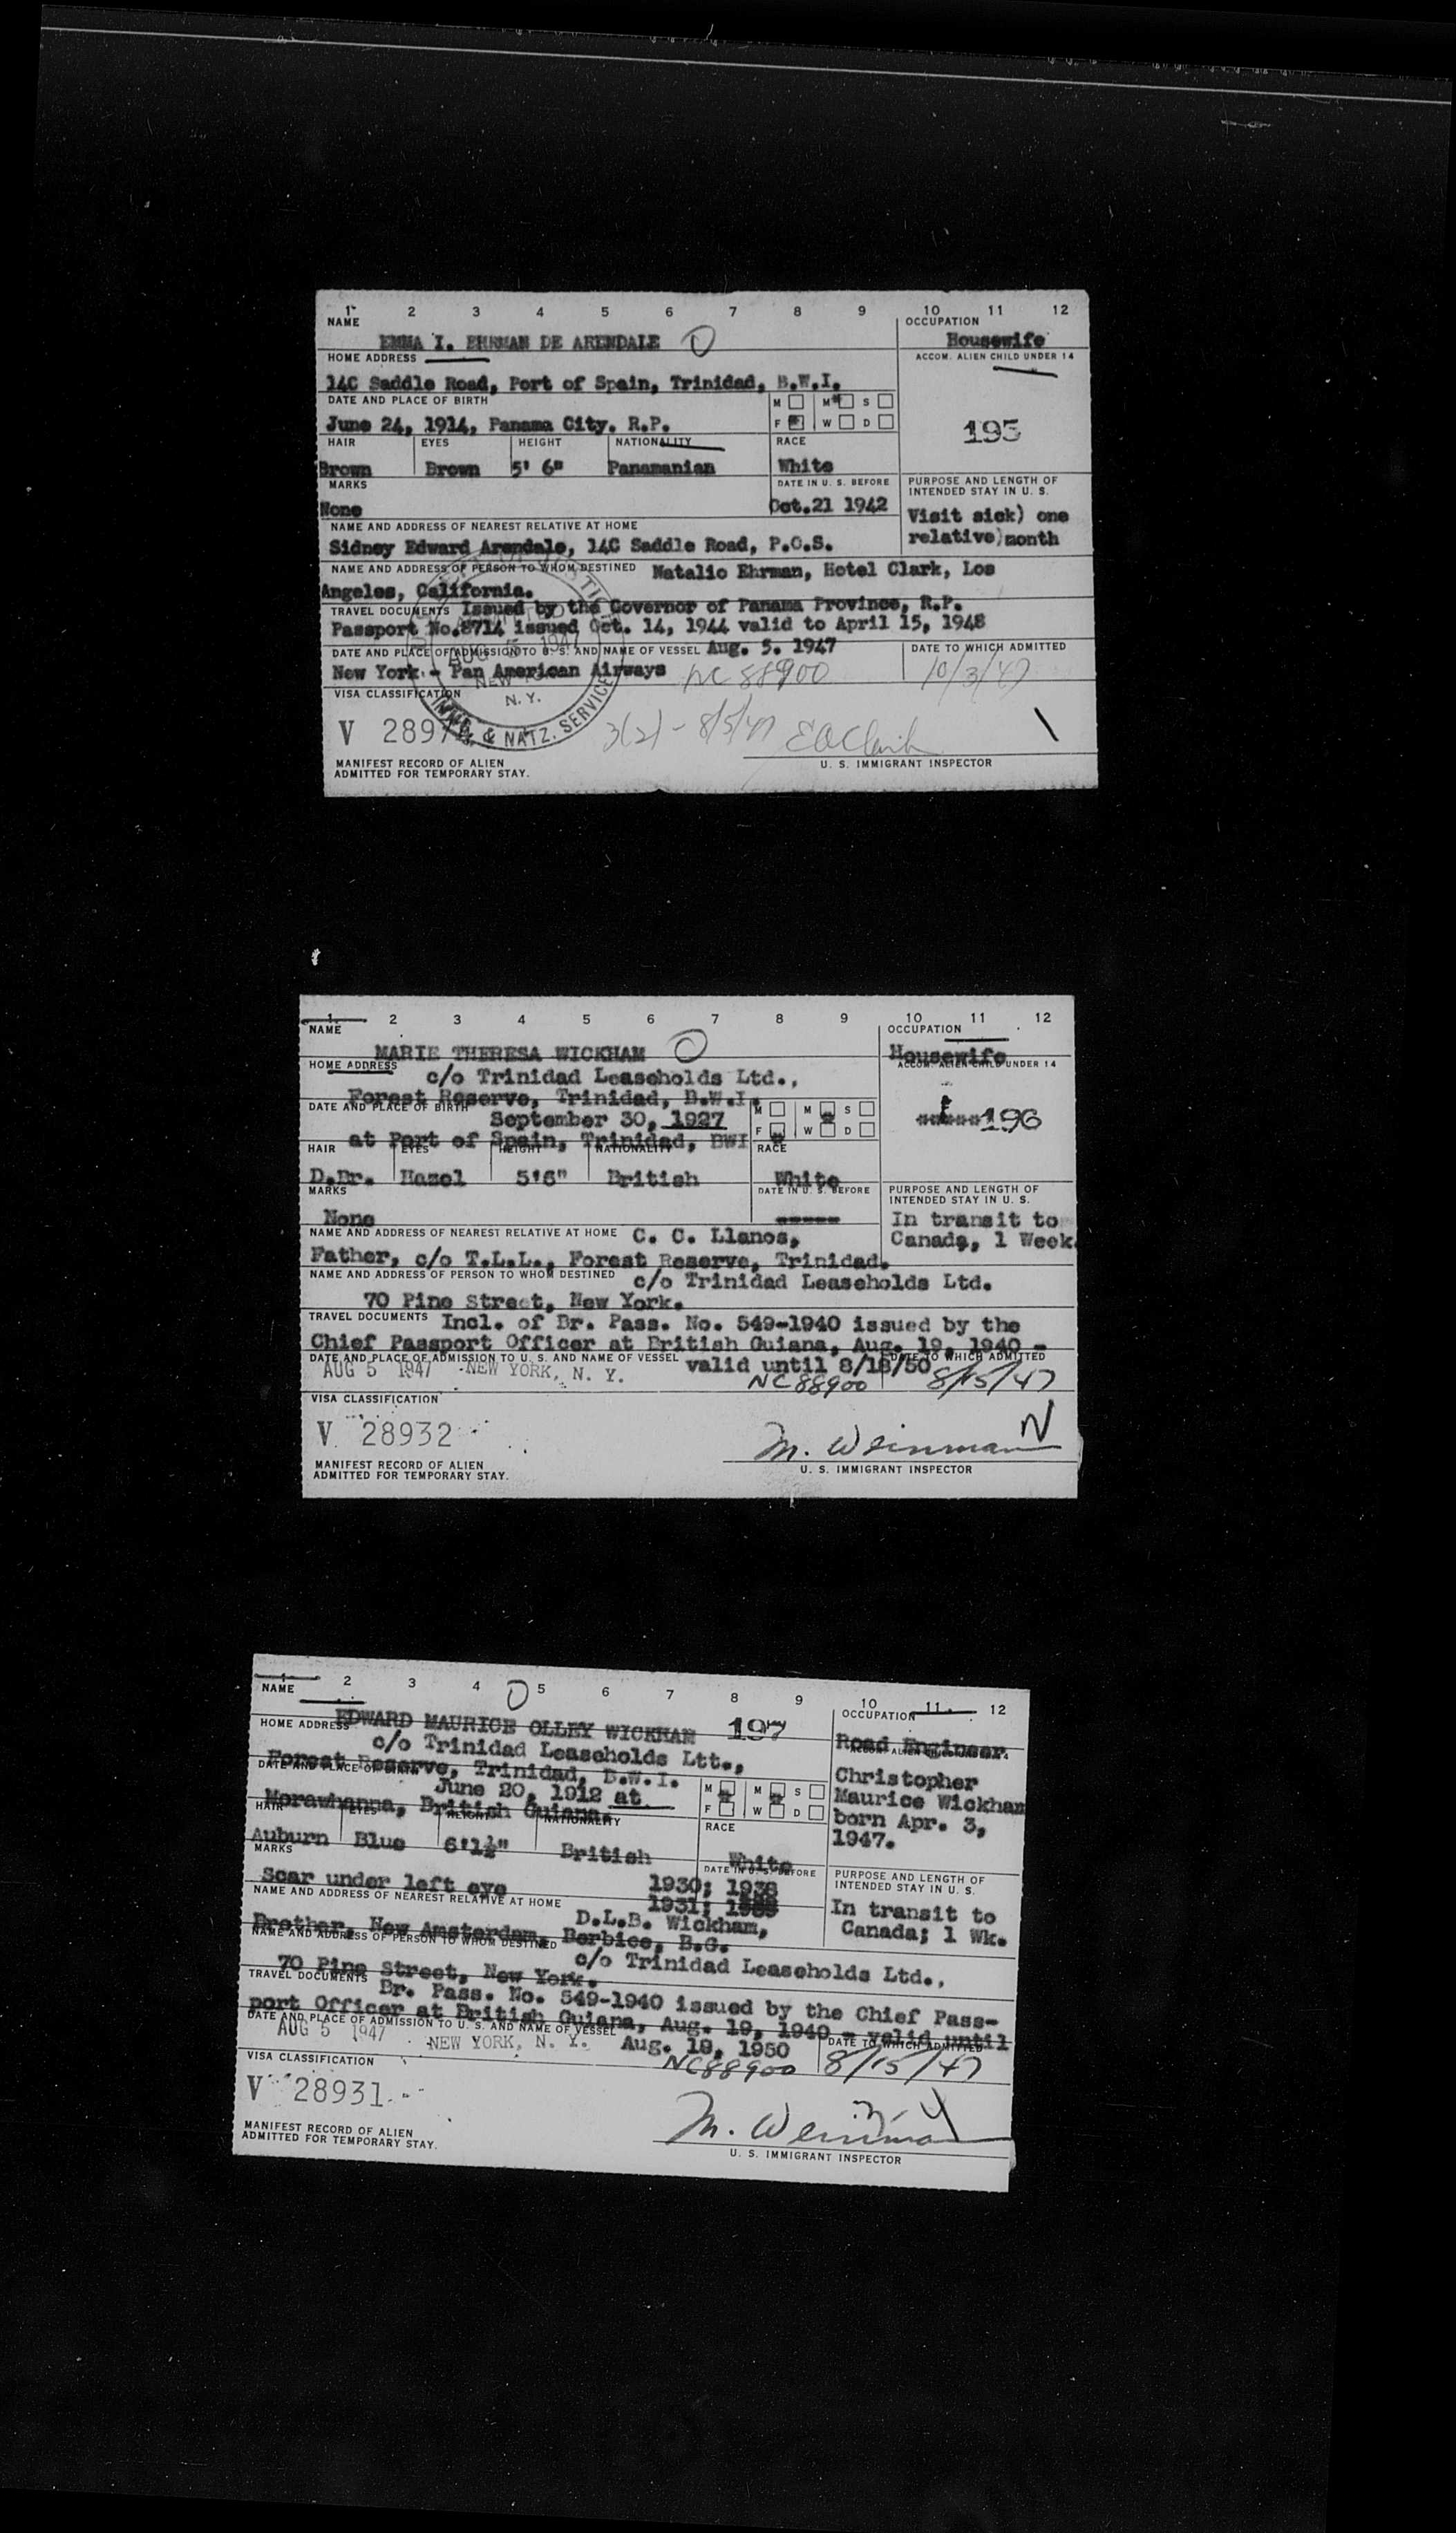 1 2 3 4 5 6 7 8 9 10 11 12
NAME OCCUPATION
EMMA I. EHRMAN DE ARENDALE Housewife
HOME ADDRESS ACCOM. ALIEN CHILD UNDER 14
14C Saddle Road, Port of Spain, Trinidad, B.W.I.
DATE AND PLACE OF BIRTH M M S
June 24, 1914, Panama City, R.P. F W D 195
HAIR EYES HEIGHT NATIONALITY RACE
Brown Brown 5' 6" Panamanian White
MARKS DATE IN U. S. BEFORE PURPOSE AND LENGTH OF INTENDED STAY IN U. S.
None Oct.21 1942 Visit sick) one
NAME AND ADDRESS OF NEAREST RELATIVE AT HOME relative)month
Sidney Edward Arendale, 14C Saddle Road, P.O.S.
NAME AND ADDRESS OF PERSON TO WHOM DESTINED Natalio Ehrman, Hotel Clark, Los
Angeles, California.
TRAVEL DOCUMENTS Issued by the Governor of Panama Province, R.P.
Passport No.8714 issued Oct. 14, 1944 valid to April 15, 1948
DATE AND PLACE OF ADMISSION TO U. S. AND NAME OF VESSEL Aug. 5. 1947 DATE TO WHICH ADMITTED
New York - Pan American Airways NC 88900 10/3/47
VISA CLASSIFICATION
AUG 5 1947
NEW YORK
N. Y.
IMMG. & NATZ. SERVICE
V 2897 3(2) - 8/5/47 EOClark
MANIFEST RECORD OF ALIEN U. S. IMMIGRANT INSPECTOR
ADMITTED FOR TEMPORARY STAY.
1 2 3 4 5 6 7 8 9 10 11 12
NAME OCCUPATION
MARIE THERESA WICKHAM Housewife
HOME ADDRESS ACCOM. ALIEN CHILD UNDER 14
c/o Trinidad Leaseholds Ltd.,
Forest Reserve, Trinidad, B.W.I.
DATE AND PLACE OF BIRTH M M S
September 30, 1927 196
F W D
at Port of Spain, Trinidad, BWI
HAIR EYES HEIGHT NATIONALITY RACE
D.Br. Hazel 5'6" British White
MARKS DATE IN U. S. BEFORE PURPOSE AND LENGTH OF INTENDED STAY IN U. S.
None ----- In transit to
NAME AND ADDRESS OF NEAREST RELATIVE AT HOME C. C. Llanos, Canada, 1 Week.
Father, c/o T.L.L., Forest Reserve, Trinidad.
NAME AND ADDRESS OF PERSON TO WHOM DESTINED c/o Trinidad Leaseholds Ltd.
70 Pine Street, New York.
TRAVEL DOCUMENTS Incl. of Br. Pass. No. 549-1940 issued by the
Chief Passport Officer at British Guiana, Aug. 19, 1940 -
DATE AND PLACE OF ADMISSION TO U. S. AND NAME OF VESSEL valid until 8/18/50 DATE TO WHICH ADMITTED
AUG 5 1947 NEW YORK, N. Y. NC88900 8/15/47
VISA CLASSIFICATION
V 28932 M. Weinman N
MANIFEST RECORD OF ALIEN U. S. IMMIGRANT INSPECTOR
ADMITTED FOR TEMPORARY STAY.
1 2 3 4 5 6 7 8 9 10 11 12
NAME OCCUPATION
EDWARD MAURICE OLLEY WICKHAM 197 Road Engineer
HOME ADDRESS ACCOM. ALIEN CHILD UNDER 14
c/o Trinidad Leaseholds Ltt.,
Forest Reserve, Trinidad, B.W.I. Christopher
DATE AND PLACE OF BIRTH M M S Maurice Wickham
June 20, 1912 at F W D born Apr. 3,
Morawhanna, British Guiana. 1947.
HAIR EYES HEIGHT NATIONALITY RACE
Auburn Blue 6'1½" British White
MARKS DATE IN U. S. BEFORE PURPOSE AND LENGTH OF INTENDED STAY IN U. S.
Scar under left eye 1930; 1938
NAME AND ADDRESS OF NEAREST RELATIVE AT HOME 1931; In transit to
D.L.B. Wickham, Canada; 1 Wk.
Brother, New Amsterdam, Berbice, B.G.
NAME AND ADDRESS OF PERSON TO WHOM DESTINED c/o Trinidad Leaseholds Ltd.,
70 Pine Street, New York.
TRAVEL DOCUMENTS Br. Pass. No. 549-1940 issued by the Chief Pass-
port Officer at British Guiana, Aug. 19, 1940 - valid until
DATE AND PLACE OF ADMISSION TO U. S. AND NAME OF VESSEL Aug. 18, 1950 DATE TO WHICH ADMITTED
AUG 5 1947 NEW YORK, N. Y. NC88900 8/15/47
VISA CLASSIFICATION
V 28931 M. Weinman
MANIFEST RECORD OF ALIEN U. S. IMMIGRANT INSPECTOR
ADMITTED FOR TEMPORARY STAY.